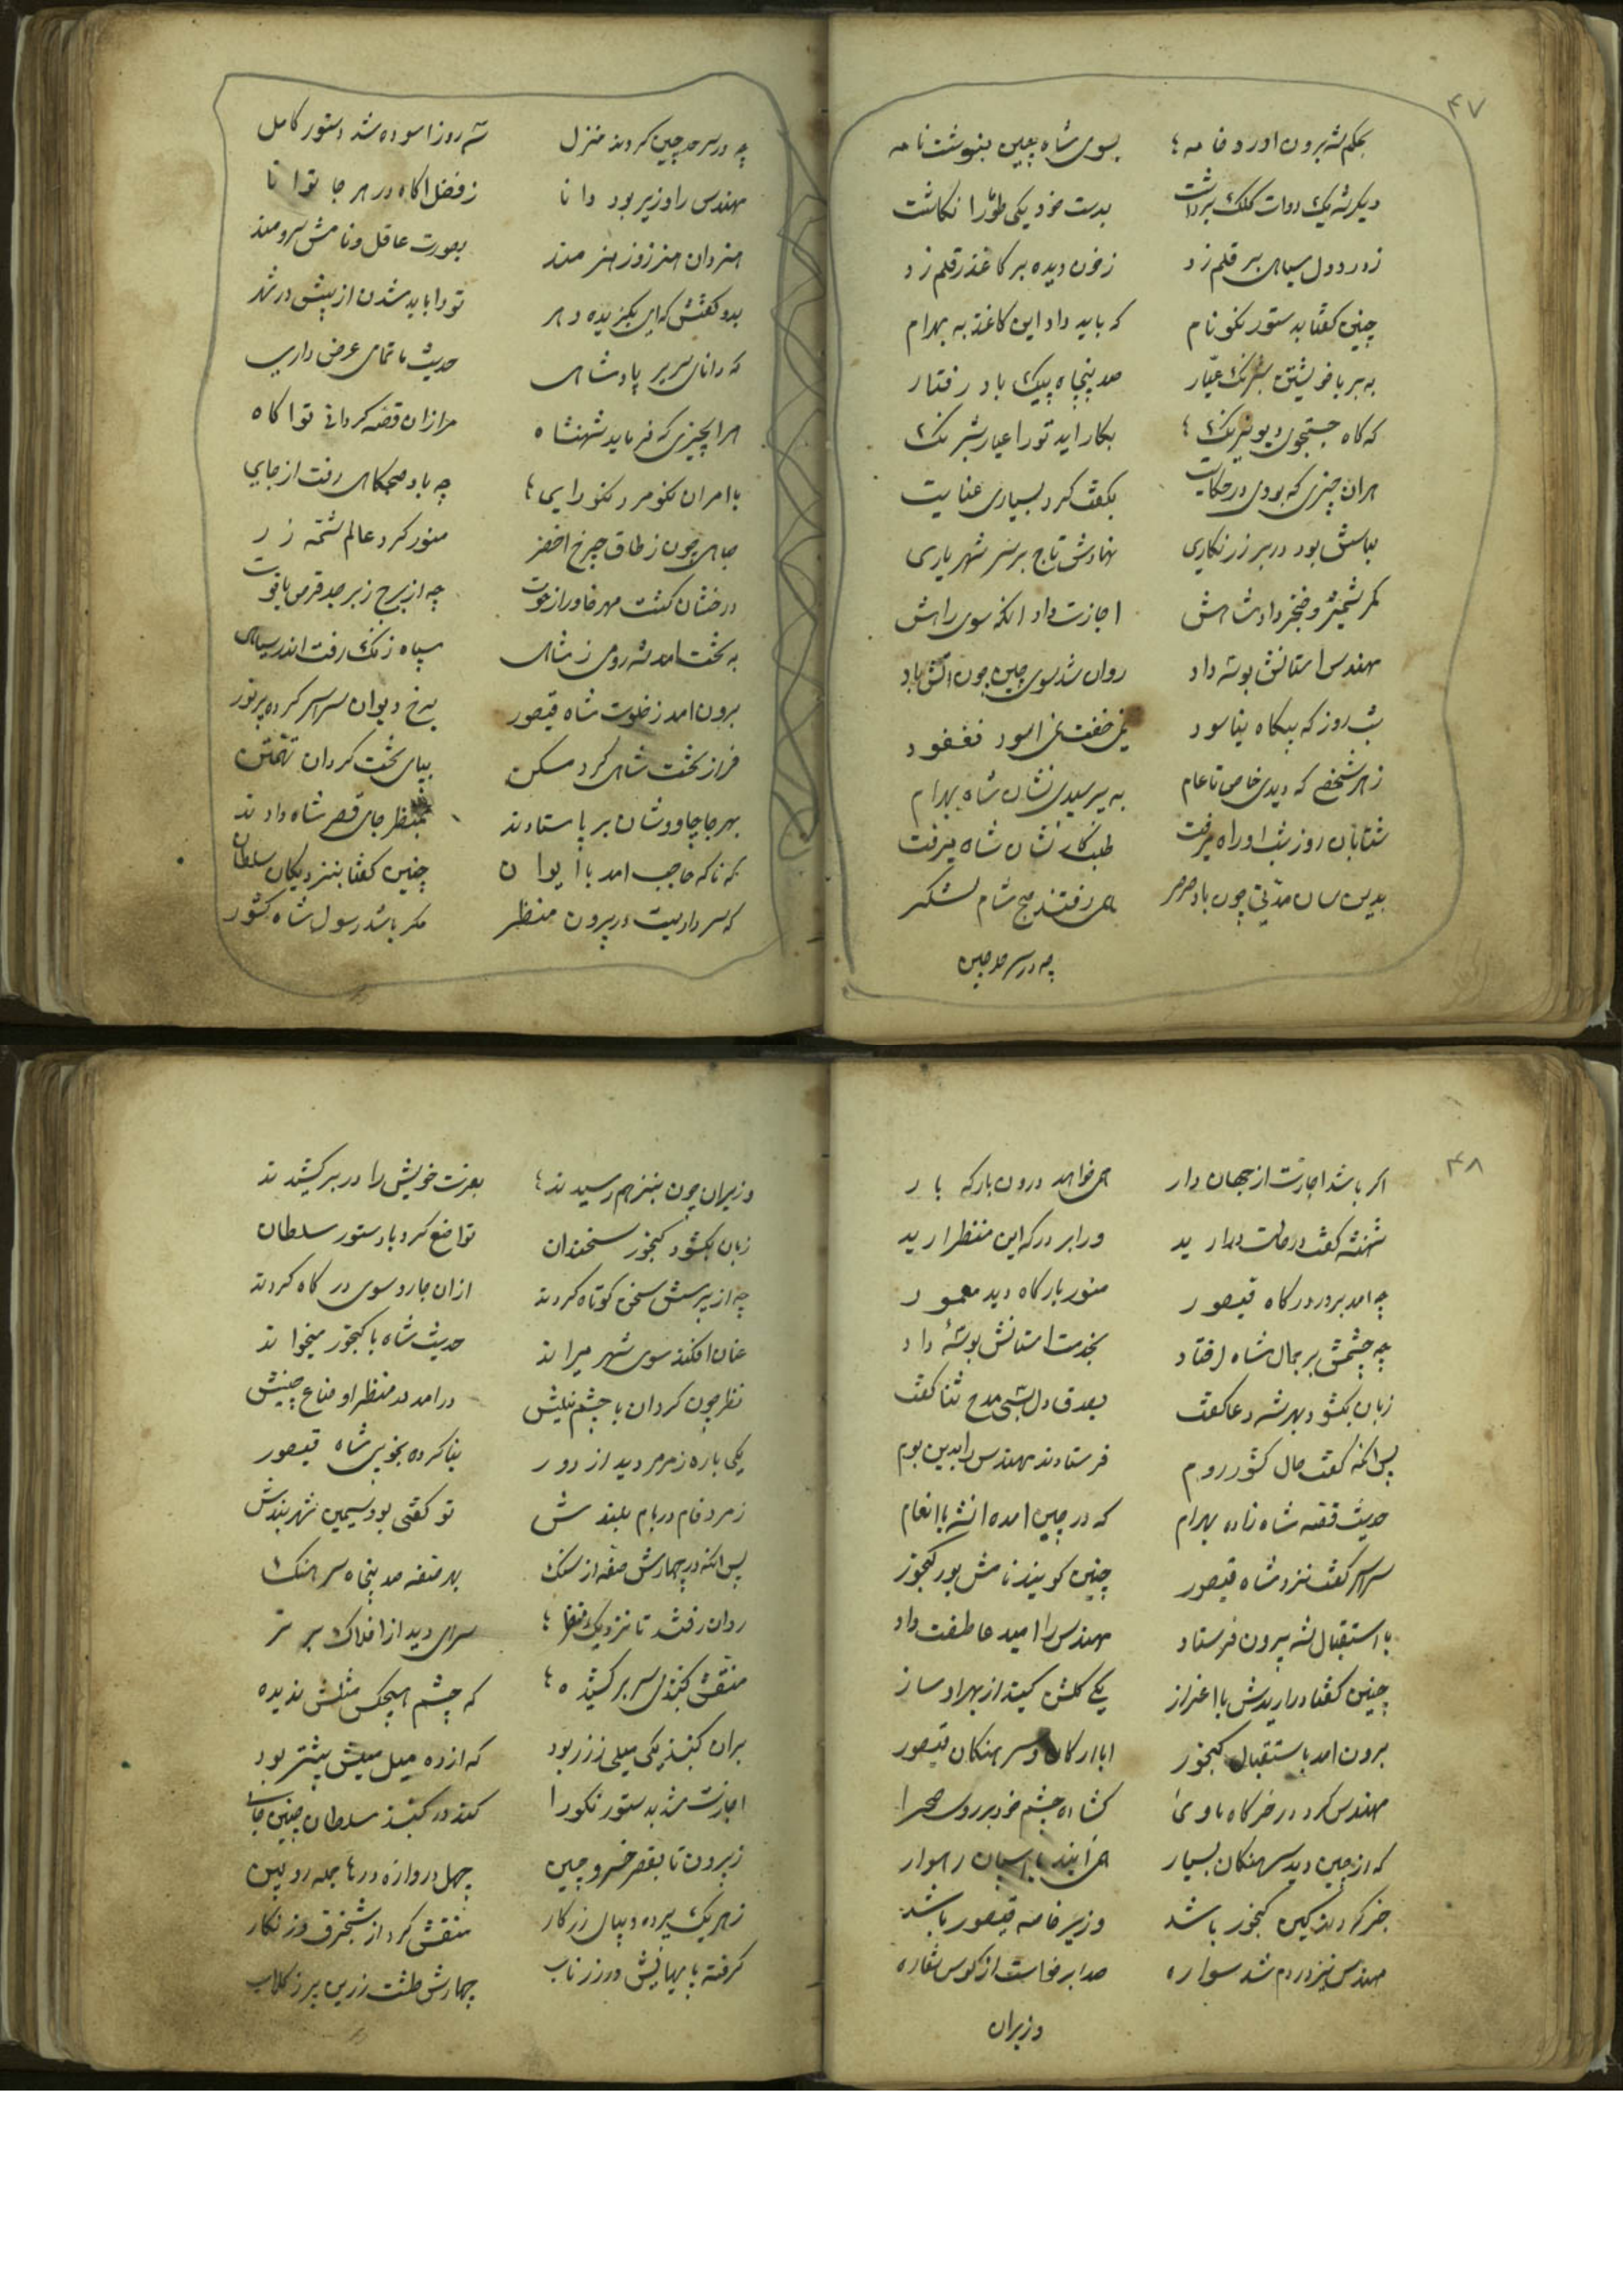 ۴۷
بحکم شه برون اورد خامه بسوی شاه چین بنوشت نامه
دبیر شه یک دوات کلک برداشت بدست خود یکی طغرا نکاشت
ز درد دل سیاهی بر قلم زد ز خون دیده بر کاغذ رقم زد
چنین کفتا بدستور نکونام که باید داد این کاغذ به بهرام
به بر با خویشتن شبرنک عیار صد پنجاه پیک باد رفتار
که کاه جستجوی دیو نیرنک بکار اید تو را عیار شبرنک
هران چیزی که بودی در حکایت بکفت کرد بسیاری عنایت
لباسش بود در بر زرنکاری نهادش تاج بر سر شهریاری
کمر شمشیر و خنجر داد شاهش اجازت داد انکه سوی راهش
مهندس استانش بوسه داد روان شد سوی چین چون اتش باد
شب روز که بیکاه نیاسود نمی خفت نمی اسود نغنود
ز هر شخصی که دیدی خاص تا عام به پرسیدی نشان شاه بهرام
شتابان روز شب او راه میرفت طلبکار نشان شاه میرفت
بدین سان مدتی چون باد صرصر همی رفتند صبح شام لشکر
چه در سرحد چین
چه در سرحد چین کردند منزل سه روز اسوده شد دستور کامل
مهندس را وزیر بود دانا ز فضل اکاه در هر جا توانا
هنردان هنرزوز هنرمند بصورت عاقل و نامش برومند
بدو کفتش که ای بکزیده دهر تو را باید شدن از پیش در شهر
که دانای سریر پادشاهی حدیث ما تمامی عرض داری
هر انچیزی که فرماید شهنشاه مرا زان قصه کردانی تو اکاه
با امر ان نکو مرد نکورایی چه باد صبحکاهی رفت از جایی
صباحی چون ز طاق چرخ اخضر منور کرد عالم شمه زر
درخشان کشت مهر خاور از حوت چه از برج زبرجد قرص یاقوت
به تخت امد شه رومی ز شاهی سپاه زنک رفت اندر سیاهی
برون امد ز خلوت شاه قیصور برخ دیوان سراسر کرده پرنور
فراز تخت شاهی کرد مسکن بپای تخت کردان تهمتن
بهر جا چاووشان بر پا ستادند بمنظر جای قصر شاه دادند
که ناکه حاجب امد با ایوان چنین کفتا بنزدیکان سلطان
که سرداریست در بیرون منظر مکر باشد رسول شاه کشور
۴۸
اکر باشد اجازت از جهان دار همی خواهد درون بارکه بار
شهنشه کفت در ارید ورا بر درکه این منظر ارید
چه امد بر در درکاه قیصور منور بارکاه دید معمور
چه چشمش بر جمال شاه افتاد بخدمت استانش بوسه داد
زبان بکشود بهر شه دعا کفت بصدق دل بسی مدح ثنا کفت
پس انکه کفت حال کشور روم فرستادند مهندس را بدین بوم
حدیث قصه شاه زاده بهرام که در چین امده ان شه با انعام
سراسر کفت نزد شاه قیصور چنین کویند نامش بود کنجور
با استقبال شه بیرون فرستاد مهندس را امید عاطفت داد
چنین کفتا در اریدش با اعزاز یکی کلشن کیند از بهر او ساز
برون امد باستقبال کنجور ابا ارکان و سرهنکان قیصور
مهندس کرد در خرکاه ماوی کشاده چشم خود بر روی صحرا
که از چین دید سرهنکان بسیار همی ایند با اسبان رهوار
خبر کردند کین کنجور باشد وزیر خاصه قیصور باشد
مهندس نیز در دم شد سواره صدا برخواست از کوس نقاره
وزیران
وزیران چون بنزهم رسیدند بعزت خویش را در بر کشیدند
زبان بکشود کنجور سخندان تواضع کرد با دستور سلطان
چه از پرسش سخن کوتاه کردند از ان جا رو سوی درکاه کردند
عنان افکند سوی شهر میراند حدیث شاه با کنجور میخواند
نظر چون کردان با چشم نیلیش درامد در منظر اوضاع چینیش
یکی باره ز مرمر دید از دور بنا کرده بخوبی شاه قیصور
زمرد فام در بام بلندش تو کفتی بود سیمین شهربندش
پس انکه در چهارش صفه از سنک بهر صفه صد پنجاه سرهنک
روان رفتند تا نزدیک سرای دید از افلاک برتر
منقش کنبدی سر بر کشیده که چشم هیچکس مثلش ندیده
بران کنبذ یکی میلی ز زر بود که از ده میل میلش بیشتر بود
اجازت شد بدستور نکورا کند در کنبذ سلطان چنین جا
ز بیرون تا بقصر خسرو چین چهل دروازه درها جمله رویین
ز هر یک پرده دیبای زرکار منقش کرد از شنجرف و زنکار
کرفته با میانیش در زر ناب چهارش طشت زرین پر ز کلاب